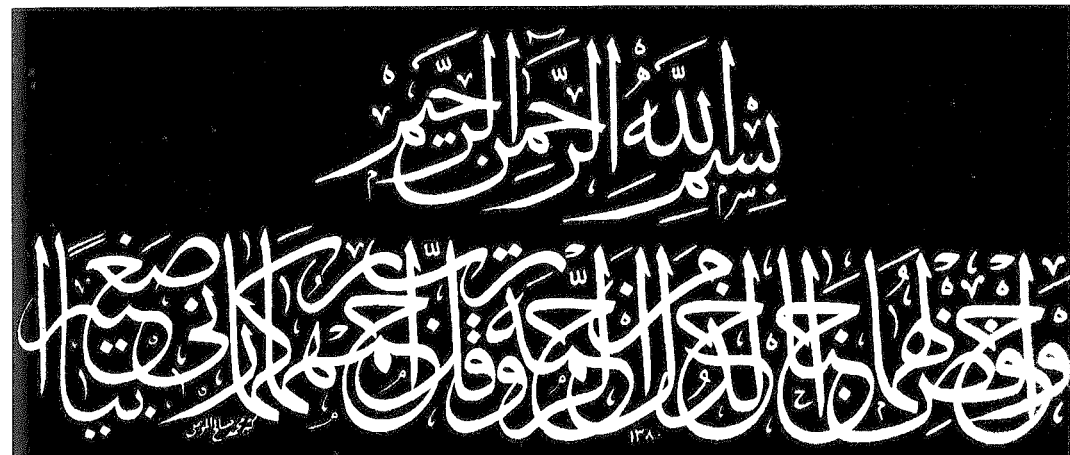 بِسْمِ اللَّهِ الرَّحْمَٰنِ الرَّحِيمِ
وَاخْفِضْ لَهُمَا جَنَاحَ الذُّلِّ مِنَ الرَّحْمَةِ وَقُلْ رَبِّ ارْحَمْهُمَا كَمَا رَبَّيَانِي صَغِيرًا
١٣٨٠
كتبه محمد صالح الموصلي